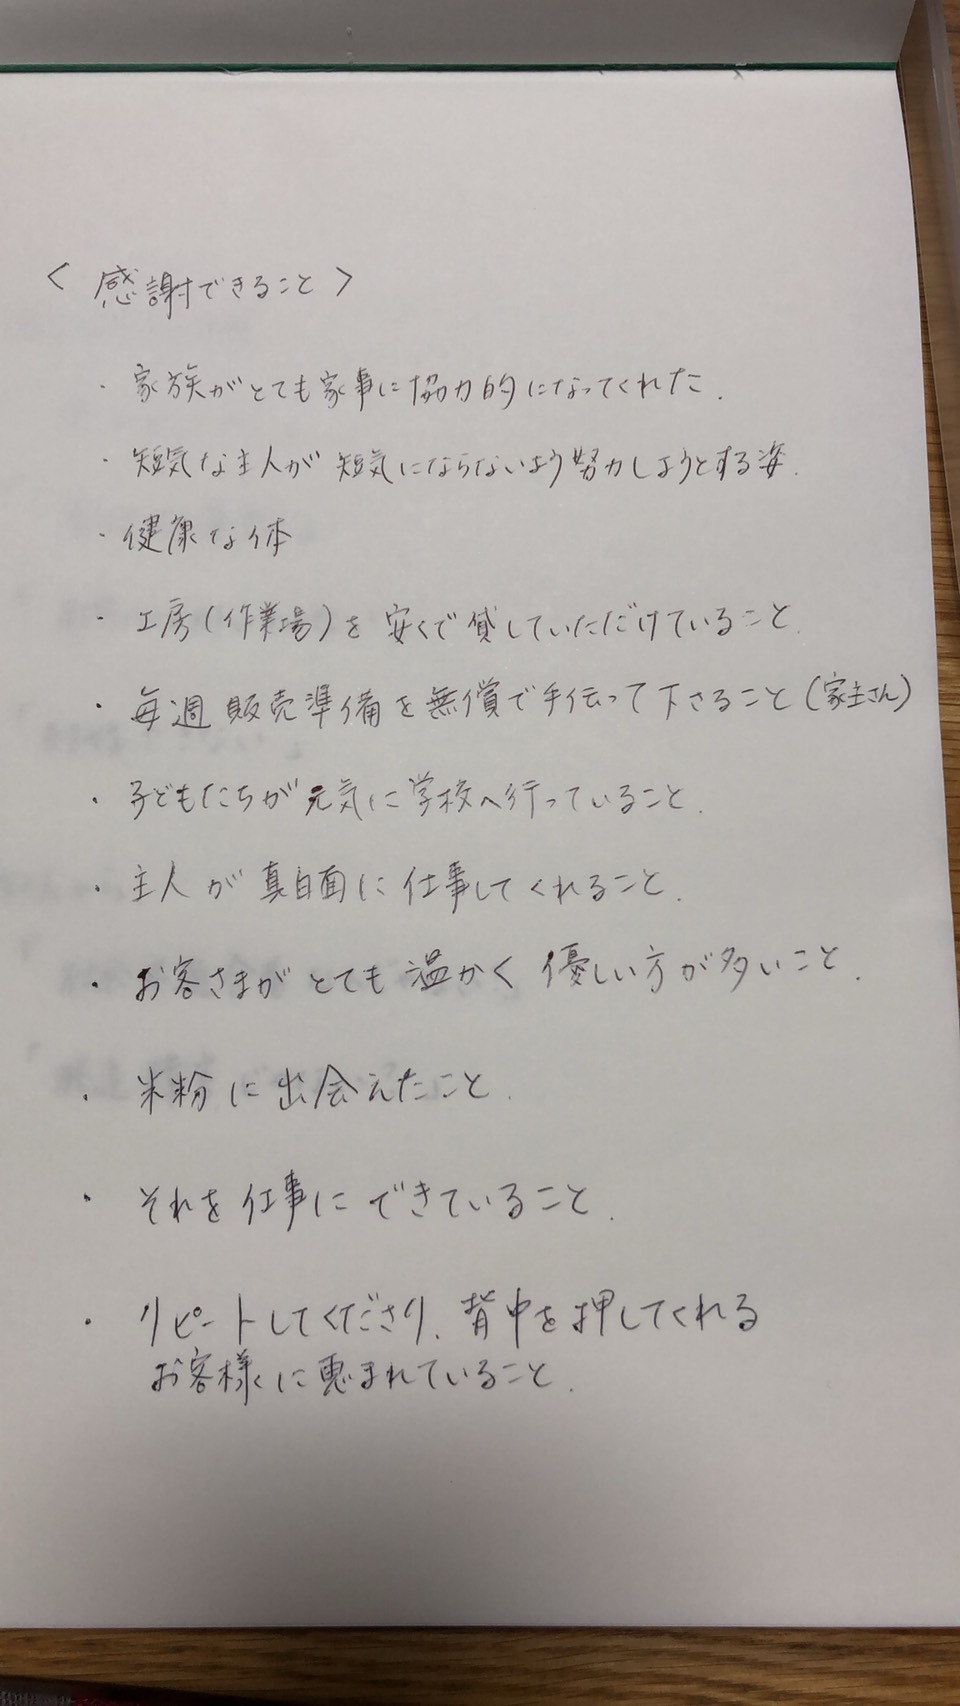 〈 感謝できること 〉
・家族がとても家事に協力的になってくれた.
・短気な主人が短気にならないよう努力しようとする姿.
・健康な体
・工房(作業場)を安くで貸していただけていること.
・毎週販売準備を無償で手伝って下さること(家主さん)
・子どもたちが元気に学校へ行っていること.
・主人が真白面に仕事してくれること.
・お客さまがとても温かく優しい方が多いこと.
・米粉に出会えたこと.
・それを仕事にできていること.
・リピートしてくださり、背中を押してくれる
お客様に恵まれていること.